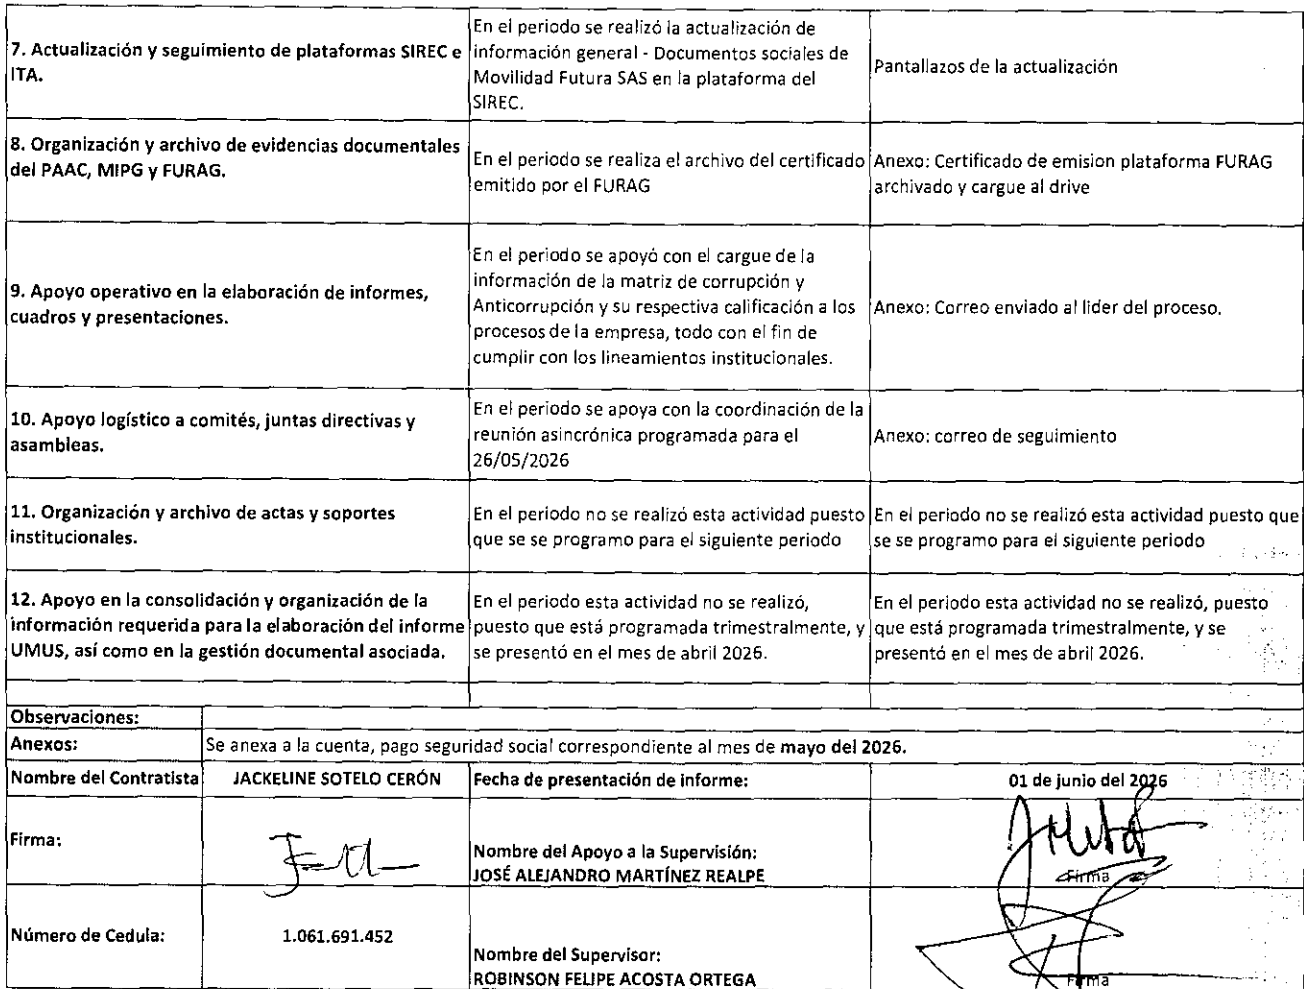 7. Actualización y seguimiento de plataformas SIREC e
ITA.
En el periodo se realizó la actualización de
información general - Documentos sociales de
Movilidad Futura SAS en la plataforma del
SIREC.
Pantallazos de la actualización
8. Organización y archivo de evidencias documentales
del PAAC, MIPG y FURAG.
En el periodo se realiza el archivo del certificado
emitido por el FURAG
Anexo: Certificado de emision plataforma FURAG
archivado y cargue al drive
9. Apoyo operativo en la elaboración de informes,
cuadros y presentaciones.
En el periodo se apoyó con el cargue de la
información de la matriz de corrupción y
Anticorrupción y su respectiva calificación a los
procesos de la empresa, todo con el fin de
cumplir con los lineamientos institucionales.
Anexo: Correo enviado al lider del proceso.
10. Apoyo logístico a comités, juntas directivas y
asambleas.
En el periodo se apoya con la coordinación de la
reunión asincrónica programada para el
26/05/2026
Anexo: correo de seguimiento
11. Organización y archivo de actas y soportes
institucionales.
En el periodo no se realizó esta actividad puesto
que se se programo para el siguiente periodo
En el periodo no se realizó esta actividad puesto que
se se programo para el siguiente periodo
12. Apoyo en la consolidación y organización de la
información requerida para la elaboración del informe
UMUS, así como en la gestión documental asociada.
En el periodo esta actividad no se realizó,
puesto que está programada trimestralmente, y
se presentó en el mes de abril 2026.
En el periodo esta actividad no se realizó, puesto
que está programada trimestralmente, y se
presentó en el mes de abril 2026.
Observaciones:
Anexos:
Se anexa a la cuenta, pago seguridad social correspondiente al mes de mayo del 2026.
Nombre del Contratista
JACKELINE SOTELO CERÓN
Fecha de presentación de informe:
01 de junio del 2026
Firma:
Nombre del Apoyo a la Supervisión:
JOSÉ ALEJANDRO MARTÍNEZ REALPE
Firma
Número de Cedula:
1.061.691.452
Nombre del Supervisor:
ROBINSON FELIPE ACOSTA ORTEGA
Firma